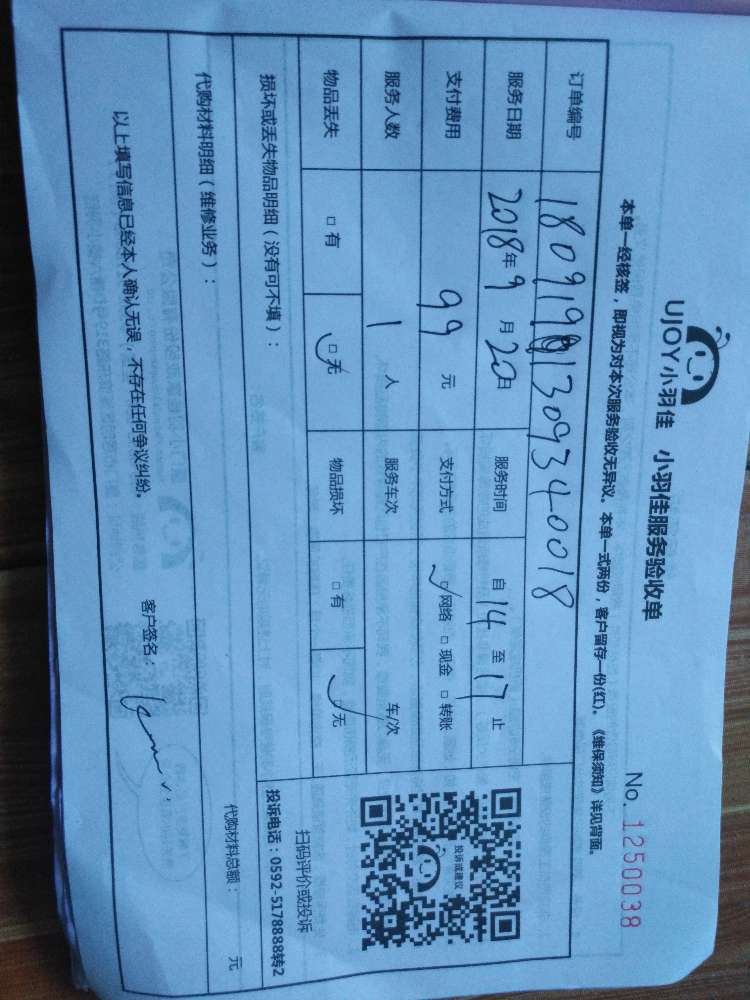 UJOY小羽佳 小羽佳服务验收单 No. 1250038
本单一经核签，即视为对本次服务验收无异议。本单一式两份，客户留存一份(红)。《维保须知》详见背面。
订单编号
服务日期 2018年9月20日 服务时间 自14至17止
支付费用 99元 支付方式 □网络 □现金 □转账
服务人数 1人 服务车次 车/次
物品丢失 □有 □无 物品损坏 □有 □无
投诉或建议
扫码评价或投诉
投诉电话：0592-5178888转2
损坏或丢失物品明细（没有可不填）：
代购材料明细（维修业务）： 代购材料总额： 元
以上填写信息已经本人确认无误，不存在任何争议纠纷。 客户签名：